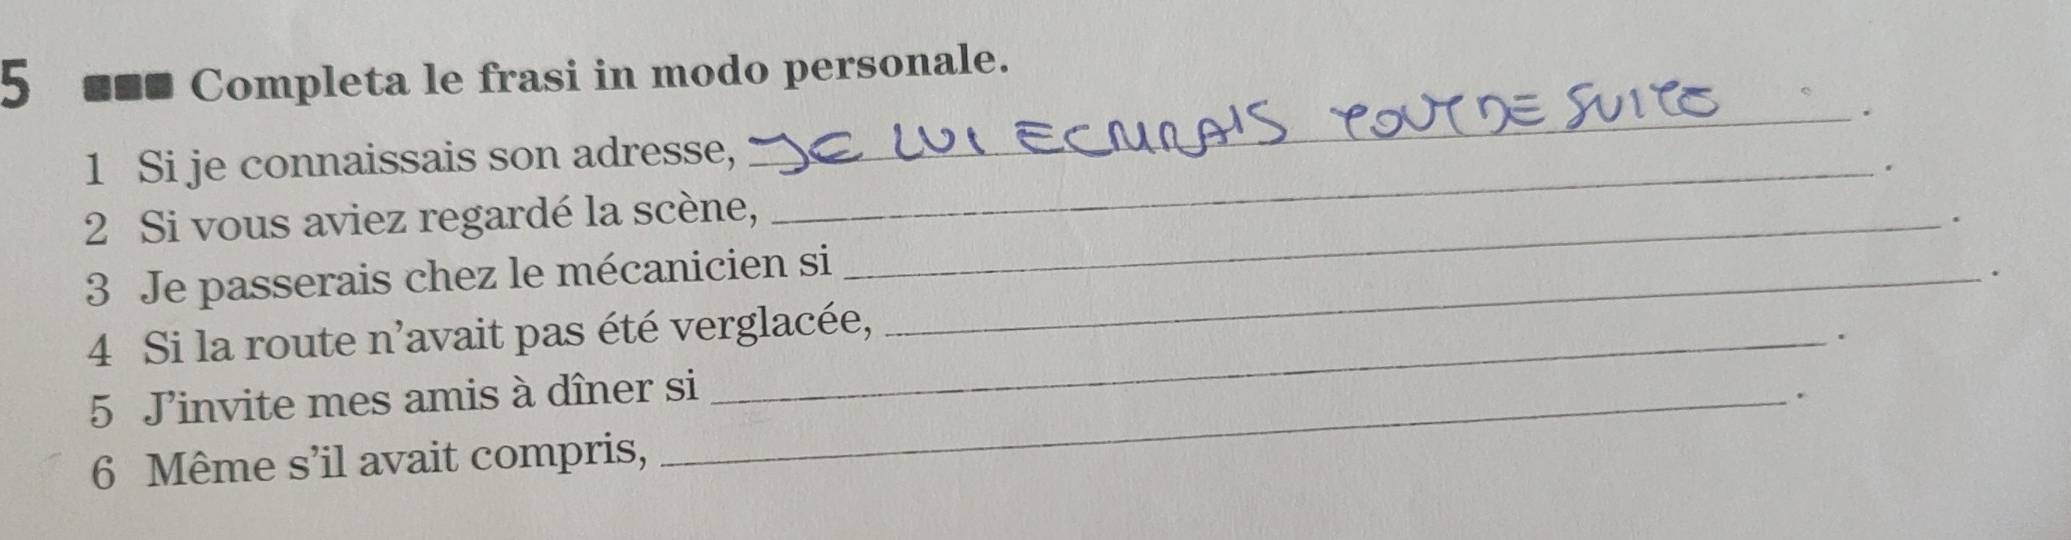 5 Completa le frasi in modo personale.
1 Si je connaissais son adresse, JE LUI ECRIRAIS TOUT DE SUITE.
2 Si vous aviez regardé la scène, ____.
3 Je passerais chez le mécanicien si ____.
4 Si la route n'avait pas été verglacée, ____.
5 J'invite mes amis à dîner si ____.
6 Même s'il avait compris, ____.